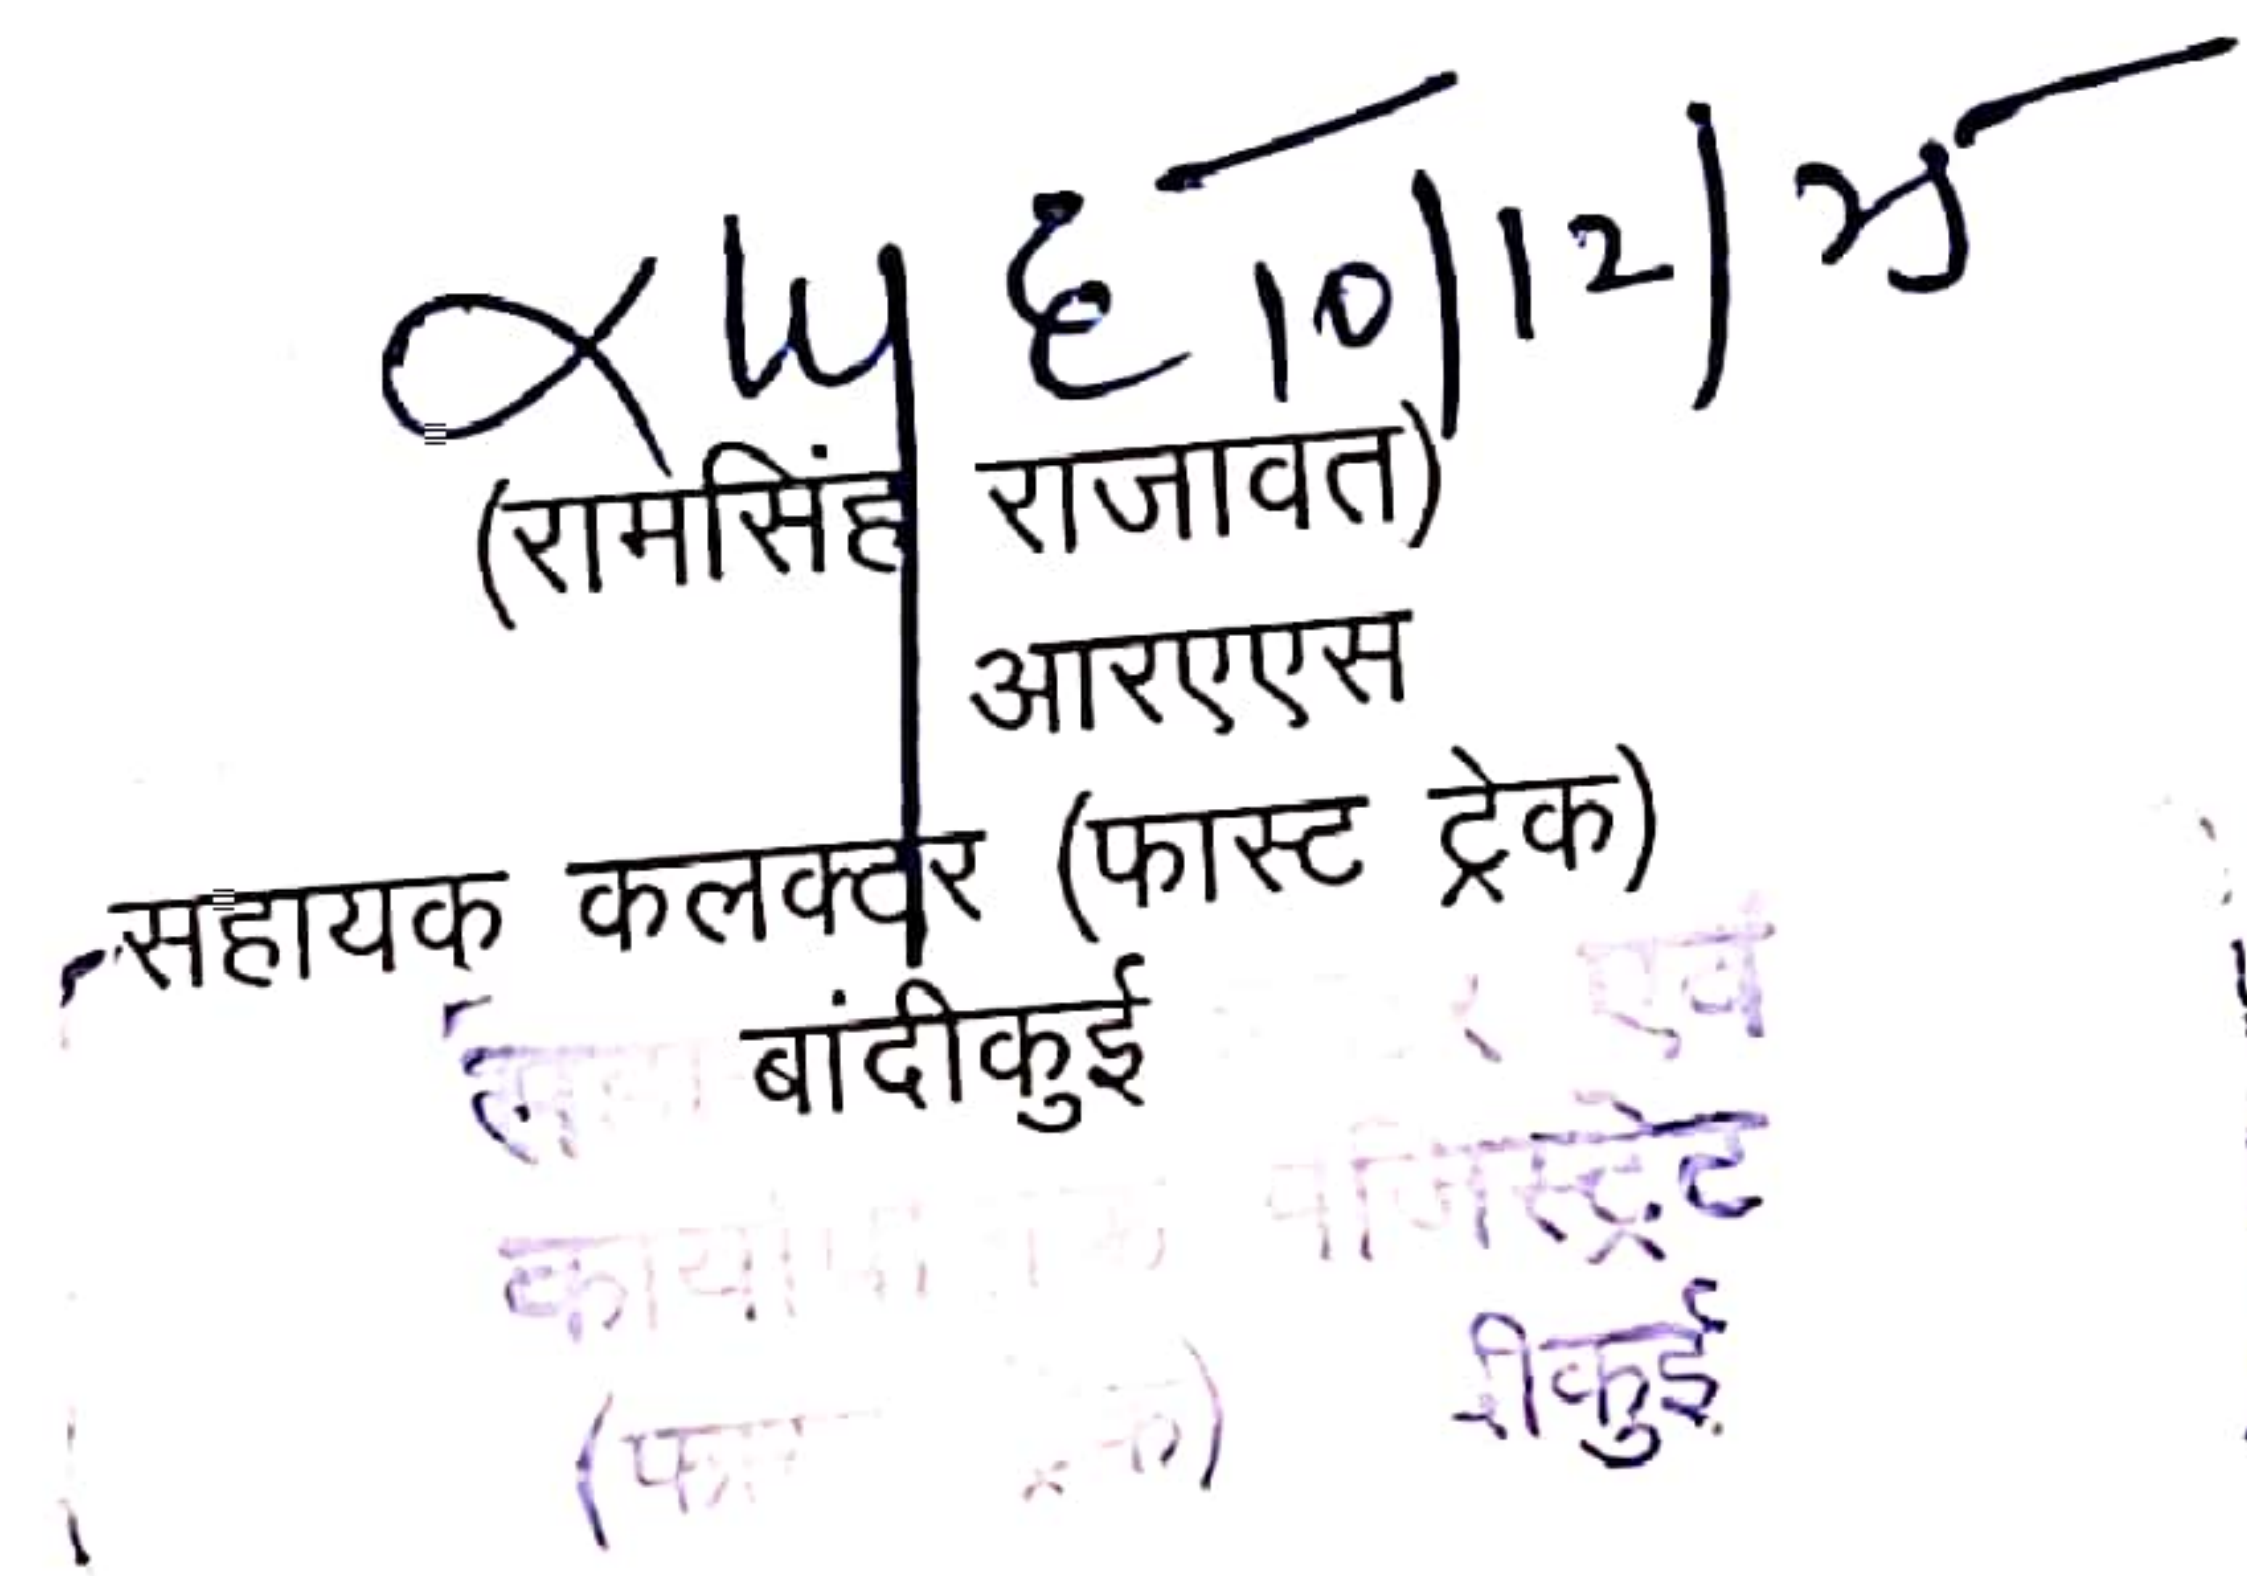 10/12/25
(रामसिंह राजावत)
आरएएस
सहायक कलक्टर (फास्ट ट्रेक)
बांदीकुई
एवं
मजिस्ट्रेट